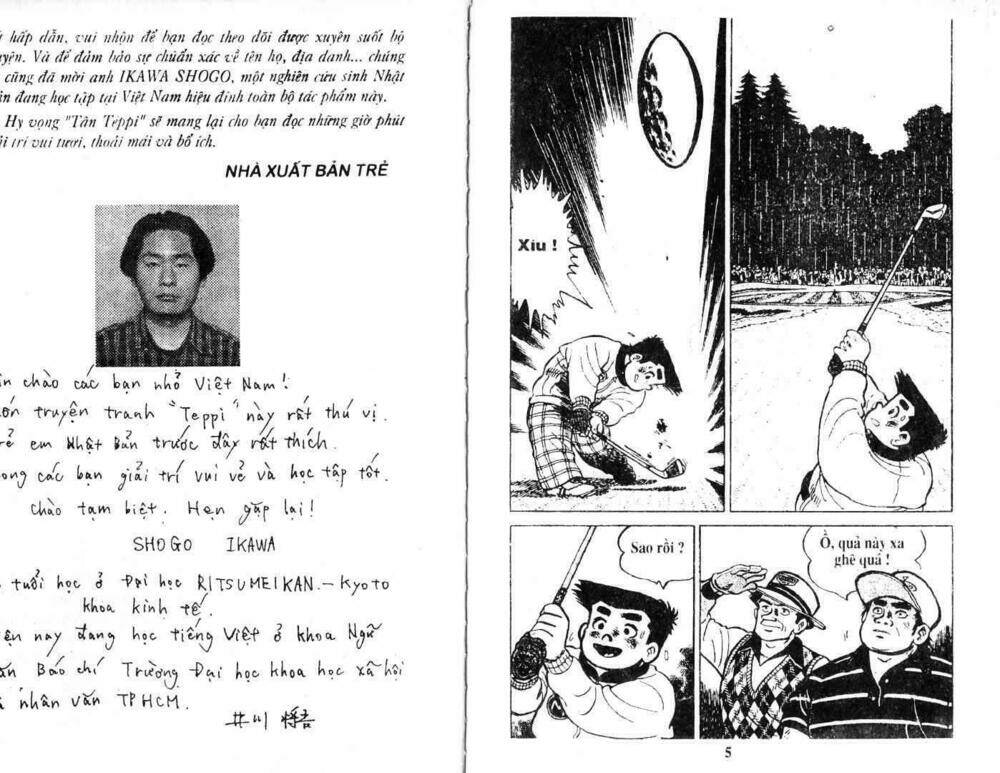 hấp dẫn, vui nhộn để bạn đọc theo dõi được xuyên suốt bộ
yện. Và để đảm bảo sự chuẩn xác về tên họ, địa danh... chúng
cũng đã mời anh IKAWA SHOGO, một nghiên cứu sinh Nhật
đang học tập tại Việt Nam hiệu đính toàn bộ tác phẩm này.
Hy vọng "Tân Teppi" sẽ mang lại cho bạn đọc những giờ phút
trí vui tươi, thoải mái và bổ ích.
NHÀ XUẤT BẢN TRẺ
in chào các bạn nhỏ Việt Nam!
truyện tranh "Teppi" này rất thú vị.
em Nhật Bản trước đây rất thích.
ong các bạn giải trí vui vẻ và học tập tốt.
chào tạm biệt. Hẹn gặp lại!
SHOGO IKAWA
tuổi học ở Đại học RITSUMEIKAN.-Kyoto
khoa kinh tế.
ện nay đang học tiếng Việt ở khoa Ngữ
Báo chí Trường Đại học khoa học xã hội
nhân văn TPHCM.
井川 将吾
Xiu !
Sao rồi ?
Ồ, quả này xa
ghê quá !
5